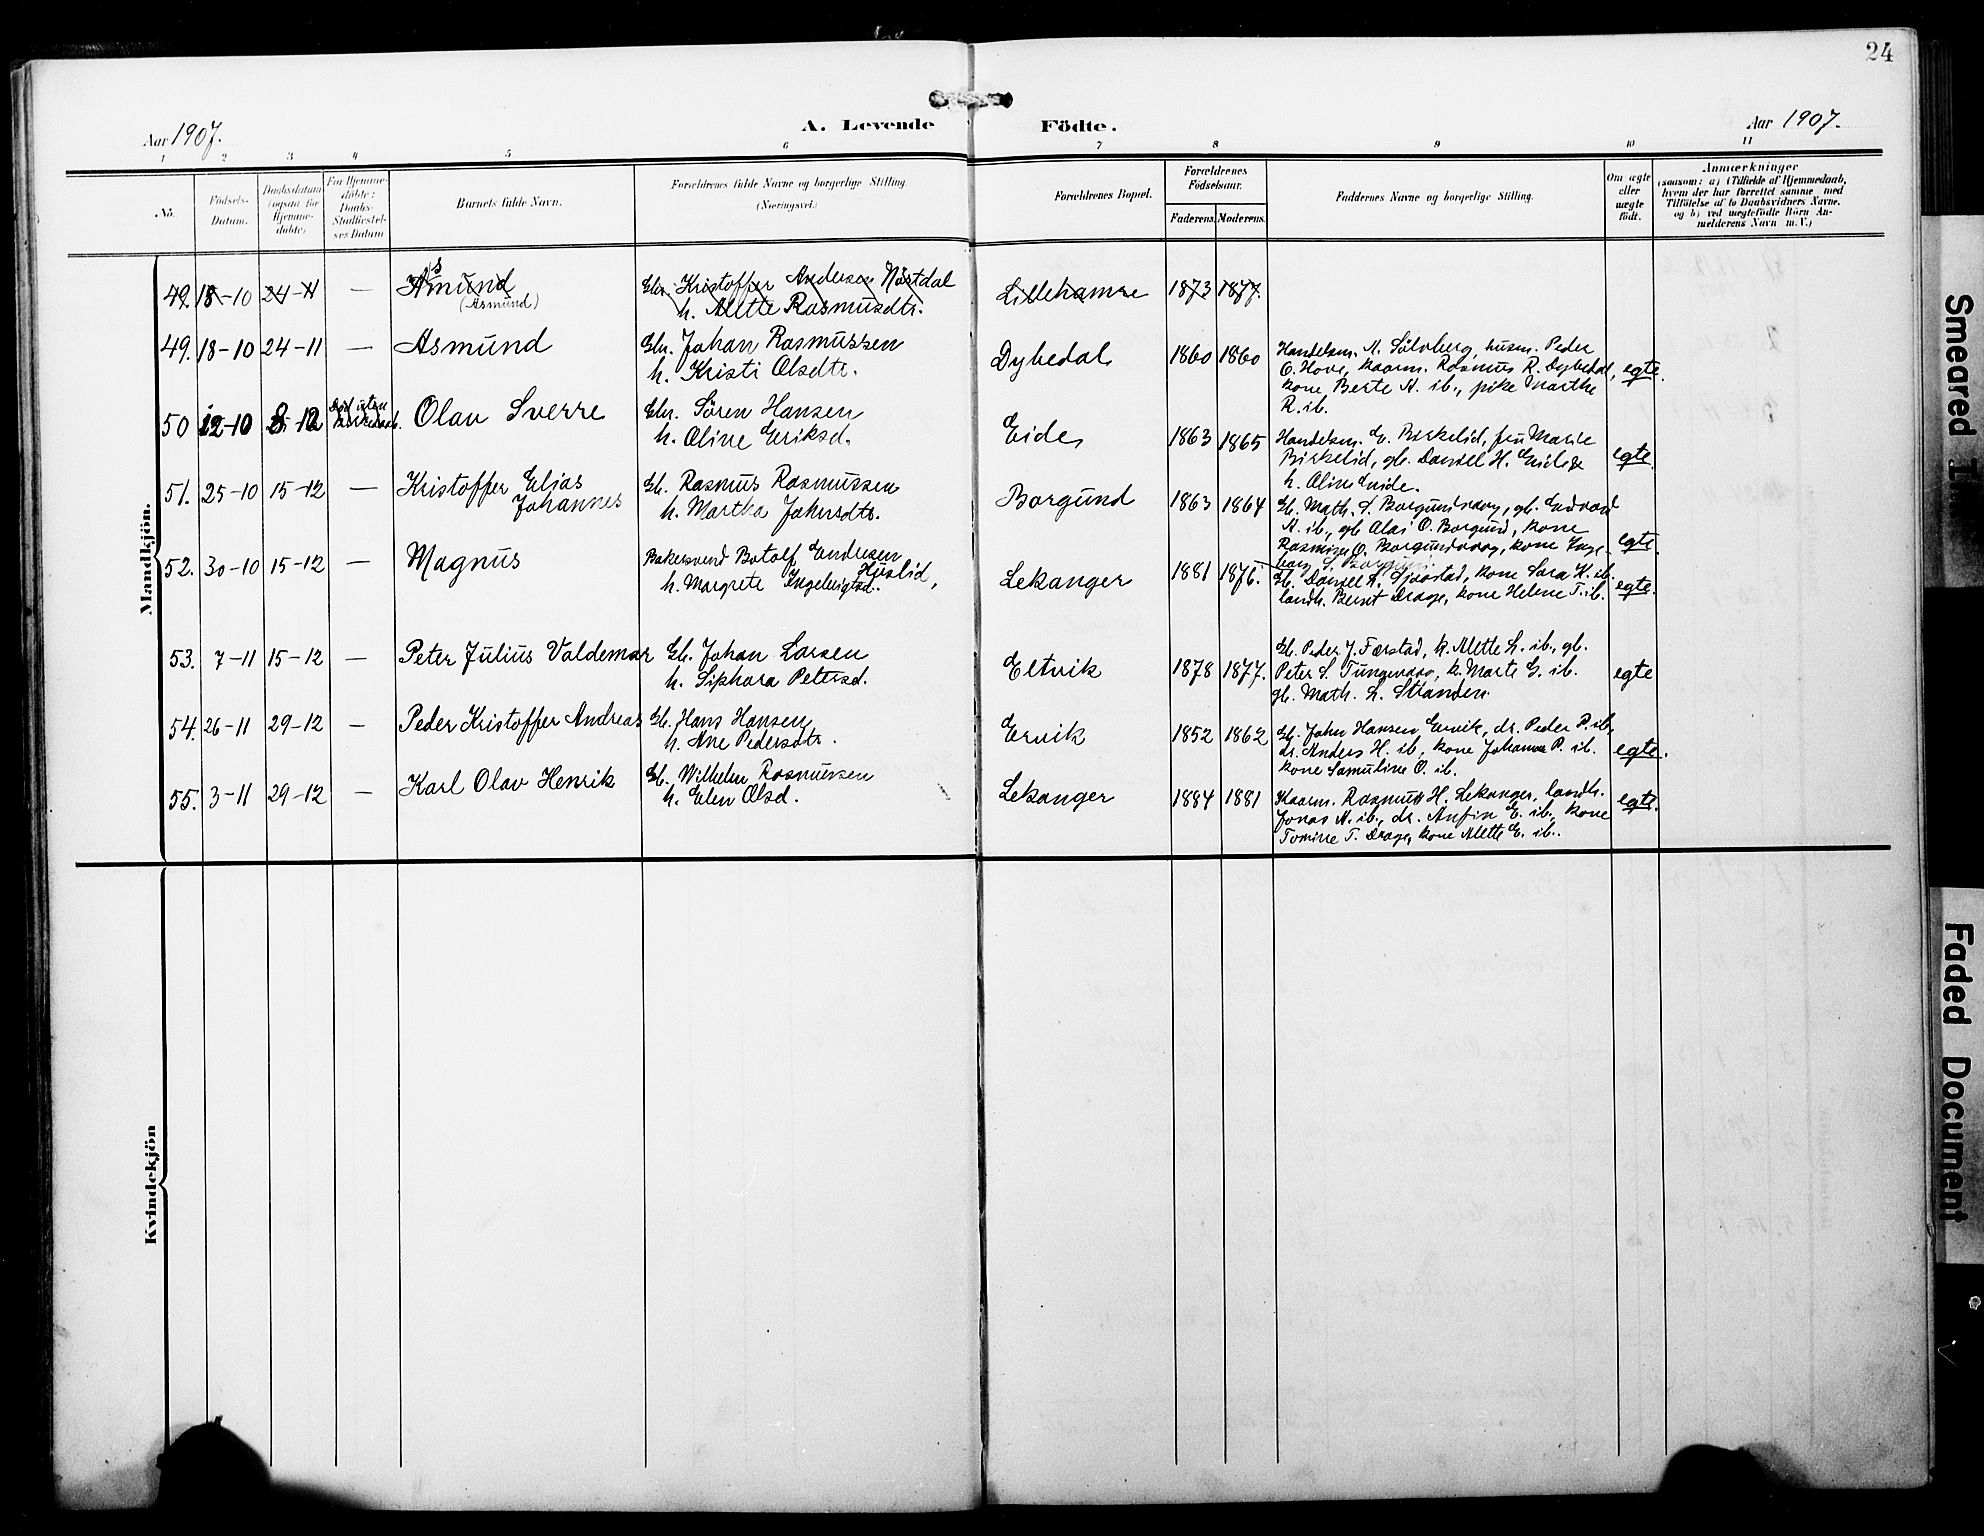 24
Aar 1907.
A. Levende Födte.
Aar 1907.
1 2 3 4 5 6 7 8 9 10 11
No.
Födsels-Datum.
Daabsdatum (ogsaa for Hjemmedöbte)
For Hjemmedöbte: Daabs-Stadfæstelses Datum
Barnets fulde Navn.
Forældrenes fulde Navne og borgerlige Stilling. (Næringsvei.)
Forældrenes Bopæl.
Forældrenes Födselsaar.
Faderens. Moderens.
Faddernes Navne og borgerlige Stilling.
Om ægte eller uægte födt.
Anmærkninger
(saasom: a) i Tilfælde af Hjemmedaab,
hvem der har forrettet samme, med
Tilföielse af to Daabsvidners Navne,
og b) ved uægtefödte Börn Anmelderens Navn m. V.)
Mandkjön.
49. 18-10 24-11 — Asmund (Asmund) Gbr. Kristoffer Andersen Nöstdal
h. Alette Rasmusdtr. Lillehamre 1873 1877.
49. 18-10 24-11 — Asmund Gbr. Johan Rasmussen
h. Kristi Olsdtr. Dybedal 1860 1860 Handelsm. A. Sölvberg, husm. Peder
O. Hove, kaarm. Rasmus R. Dybedal, egte.
kone Berte A. ib., pike Marthe
R. ib.
50 12-10 8-12 Olav Sverre Gbr. Sören Hansen
h. Oline Eriksd. Eide 1863 1865 Handelsm. E. Birkelid, fru Marie
Birkelid, gb. Daniel H. Eide & egte.
h. Oline Eide.
51. 25-10 15-12 — Kristoffer Elias
Johannes Gb. Rasmus Rasmussen
h. Martha Jakobsdtr. Borgund 1863 1864 Gb. Math. S. Borgundvaag, gb. Edvard
A. ib., gb. Olai O. Borgund, kone
Rasmine O. Borgundvaag, kone Inge- egte.
borg S. Borgund.
52. 30-10 15-12 — Magnus Bakersvend Botolf Endresen
Huslid,
h. Margrete Ingebrigtsd. Lekanger 1881 1876. Gb. Daniel A. Sjaastad, kone Sara K. ib.
landh. Bernt Drage, kone Helene T. ib. egte.
53. 7-11 15-12 — Peter Julius Valdemar Gb. Johan Larsen
h. Siphora Petersd. Eltvik 1878 1877. Gb. Peder J. Færstad, k. Alette L. ib., gb.
Peter S. Tungevaag, k. Marte G. ib. egte
gb. Math. L. Stranden.
54. 26-11 29-12 — Peder Kristoffer Andreas Gb. Hans Hansen
h. Ane Pedersdtr. Ervik 1852 1862 Gb. John Hansen Ervik, dr. Peder P. ib,
dr. Anders H. ib, kone Johanna P. ib. egte.
kone Samuline O. ib.
55. 3-11 29-12 — Karl Olav Henrik Gb. Wilhelm Rasmussen
h. Elen Olsd. Lekanger 1884 1881 Kaarm. Rasmus H. Lekanger, landh.
Jonas A. ib., dr. Anfin E. ib., kone egte.
Tomine T. Drage, kone Alette E. ib.
Kvindekjön
Smeared
Faded Document